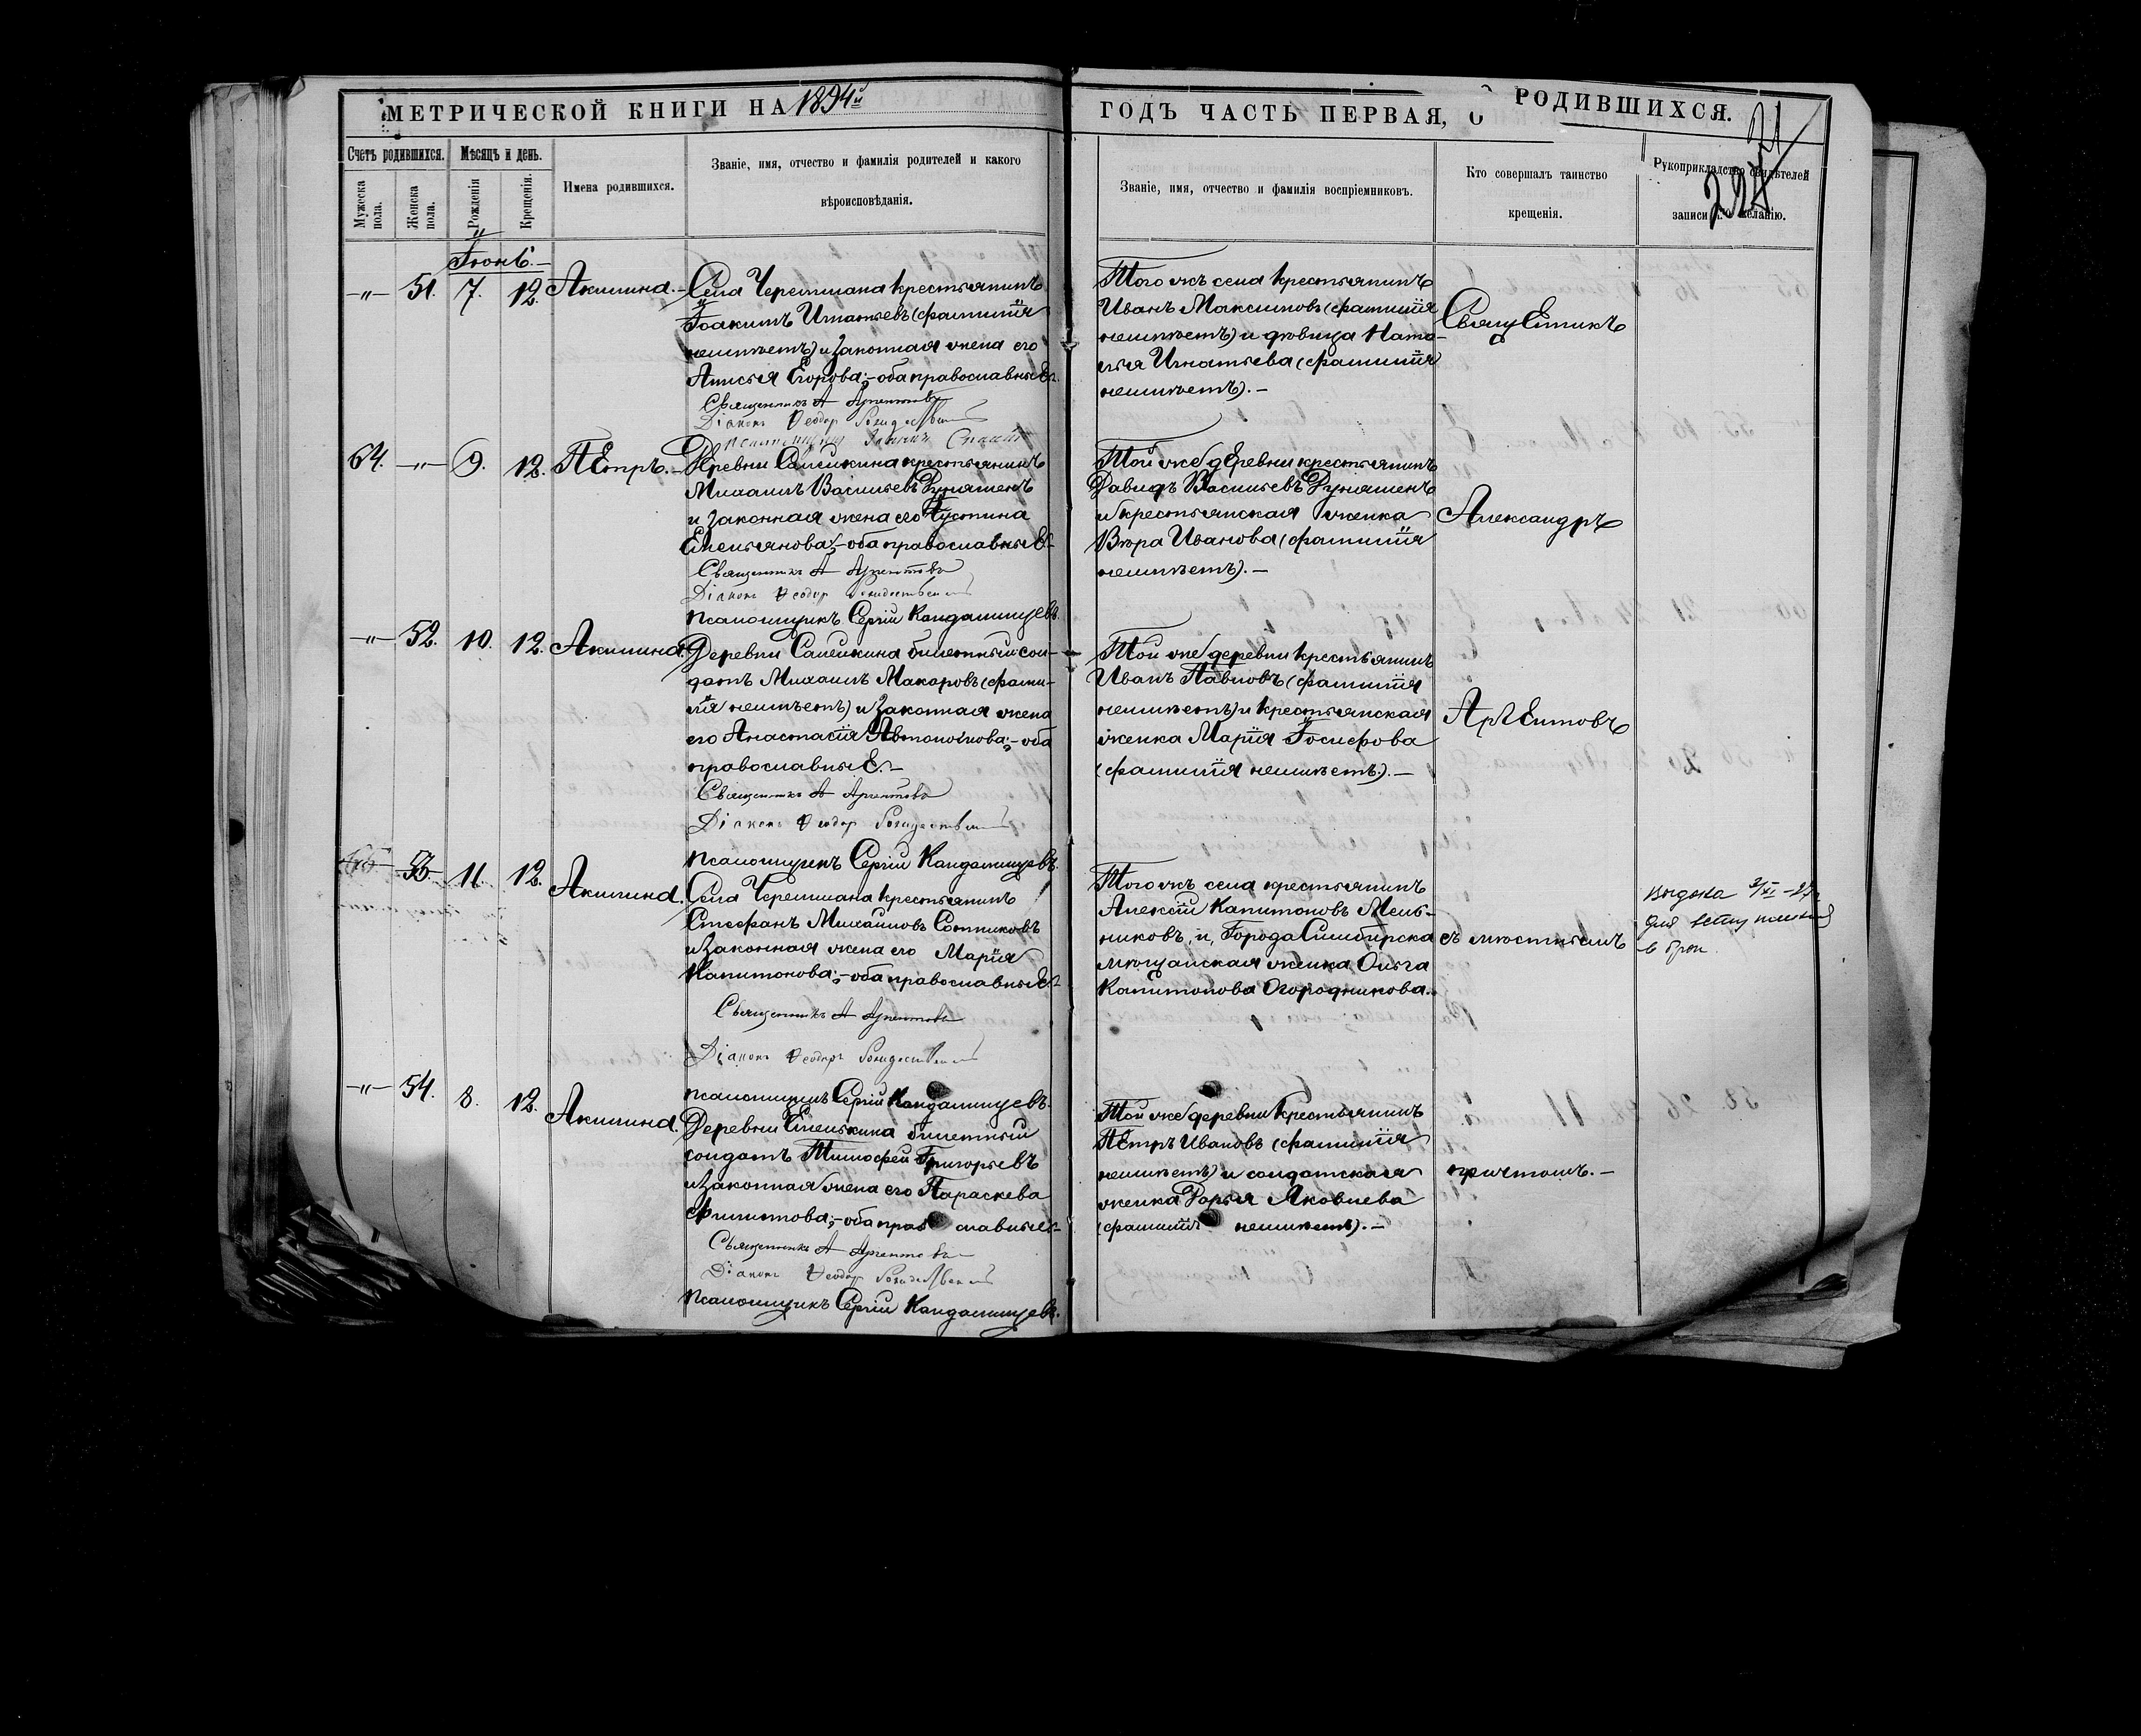 МЕТРИЧЕСКОЙ КНИГИ НА 1894й ГОДЪ ЧАСТЬ ПЕРВАЯ, О РОДИВШИХСЯ.
71
Счетъ родившихся.
Мужеска пола.
Женска пола.
Мѣсяцъ и день.
Рожденія
Крещенія.
Имена родившихся.
Званіе, имя, отчество и фамилія родителей и какого
вѣроисповѣданія.
Званіе, имя, отчество и фамилія воспріемниковъ.
Кто совершалъ таинство
крещенія.
Рукоприкладство свидѣтелей
записи по желанію.
Іюнь.
—"— 51. 7. 12. Акилина.
Села Черемшана крестьянинъ
Іоакимъ Игнатьевъ (фамилія
неимѣетъ) и законная жена его
Анисья Егорова; – оба православные.
Священникъ А Аргентовъ
Діаконъ Ѳеодоръ Рождественскій
Того жъ села крестьянинъ
Иванъ Максимовъ (фамилія
неимѣетъ) и дѣвица Ната-
лья Игнатьева (фамилія
неимѣетъ). –
Священникъ
64. —"— 9. 12. Петръ. –
Деревни Салейкина крестьянинъ
Михаилъ Васильевъ Дуняшенъ
и законная жена его Іустина
Емельянова; – оба православные. –
Священникъ А Аргентовъ
Діаконъ Ѳеодоръ Рождественскій
Псаломщикъ Сергій Кандалинцевъ.
Той же деревни крестьянинъ
Давидъ Васильевъ Дуняшенъ
и крестьянская женка
Вѣра Иванова (фамилія
неимѣетъ). –
Александръ
—"— 52. 10. 12. Акилина.
Деревни Салейкина билетный сол-
датъ Михаилъ Макаровъ (фами-
лія неимѣетъ) и законная жена
его Анастасія Автономова; – оба
православные. –
Священникъ А Аргентовъ
Діаконъ Ѳеодоръ Рождественскій
Псаломщикъ Сергій Кандалинцевъ.
Той же деревни крестьянинъ
Иванъ Павловъ (фамилія
неимѣетъ) и крестьянская
женка Марія Іосифова
(фамилія неимѣетъ). –
Аргентовъ
53. 11. 12. Акилина.
Села Черемшана крестьянинъ
Стефанъ Михаиловъ Сотниковъ
и законная жена его Марія
Капитонова; – оба православные. –
Священникъ А Аргентовъ
Діаконъ Ѳеодоръ Рождественскій
Псаломщикъ Сергій Кандалинцевъ.
Того жъ села крестьянинъ
Алексій Капитоновъ Мель-
никовъ, и, Города Симбирска
мѣщанская женка Ольга
Капитонова Огородникова.
съ мѣстнымъ
выдана 3/XI – 27г
для вступления
в брак.
—"— 54. 8. 12. Акилина.
Деревни Емелькина билетный
солдатъ Тимофей Григорьевъ
и законная жена его Параскева
Филиппова; – оба православные. –
Священникъ А Аргентовъ
Діаконъ Ѳеодоръ Рождественскій
Псаломщикъ Сергій Кандалинцевъ.
Той же деревни крестьянинъ
Петръ Ивановъ (фамилія
неимѣетъ) и солдатская
женка Дарья Яковлева
(фамилія неимѣетъ). –
причтомъ. –